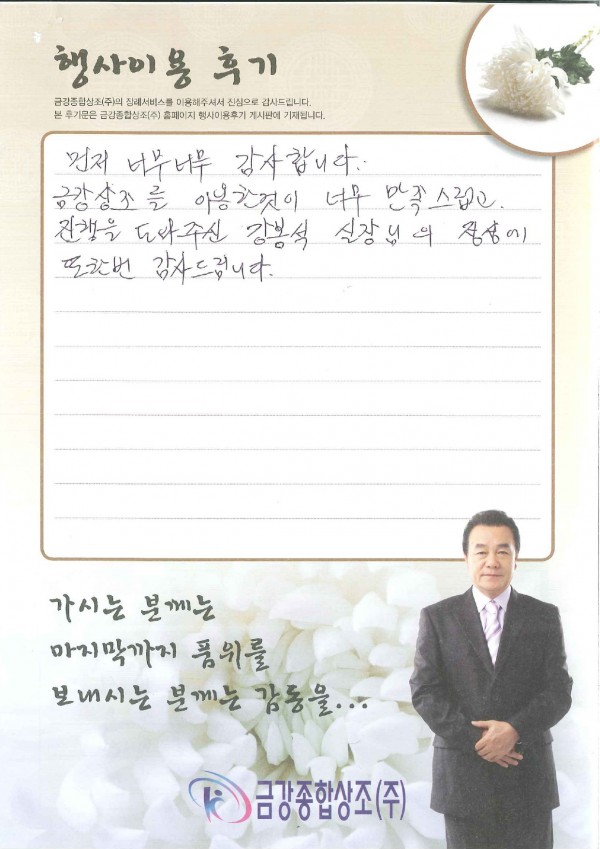 행사이용 후기
금강종합상조(주)의 장례서비스를 이용해주셔서 진심으로 감사드립니다.
본 후기문은 금강종합상조(주) 홈페이지 행사이용후기 게시판에 기재됩니다.
먼저 너무너무 감사합니다.
금강상조를 이용한것이 너무 만족스럽고.
진행을 도와주신 강봉석 실장님의 정성에
또한번 감사드립니다.
가시는 분께는
마지막까지 품위를
보내시는 분께는 감동을...
금강종합상조(주)